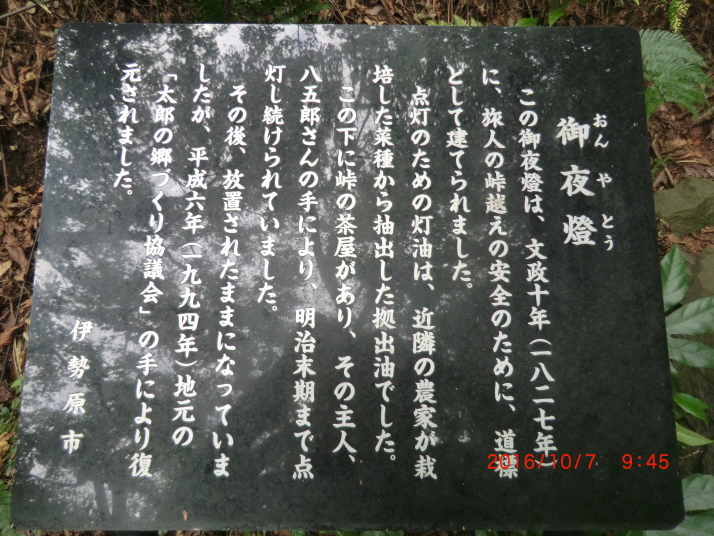 御夜燈
おんやとう
この御夜燈は、文政十年(一八二七年)
に、旅人の峠越えの安全のために、道標
として建てられました。
点灯のための灯油は、近隣の農家が栽
培した菜種から抽出した拠出油でした。
この下に峠の茶屋があり、その主人、
八五郎さんの手により、明治末期まで点
灯し続けられていました。
その後、放置されたままになっていま
したが、平成六年(一九九四年)地元の
「太郎の郷づくり協議会」の手により復
元されました。
伊勢原市
2016/10/7 9:45